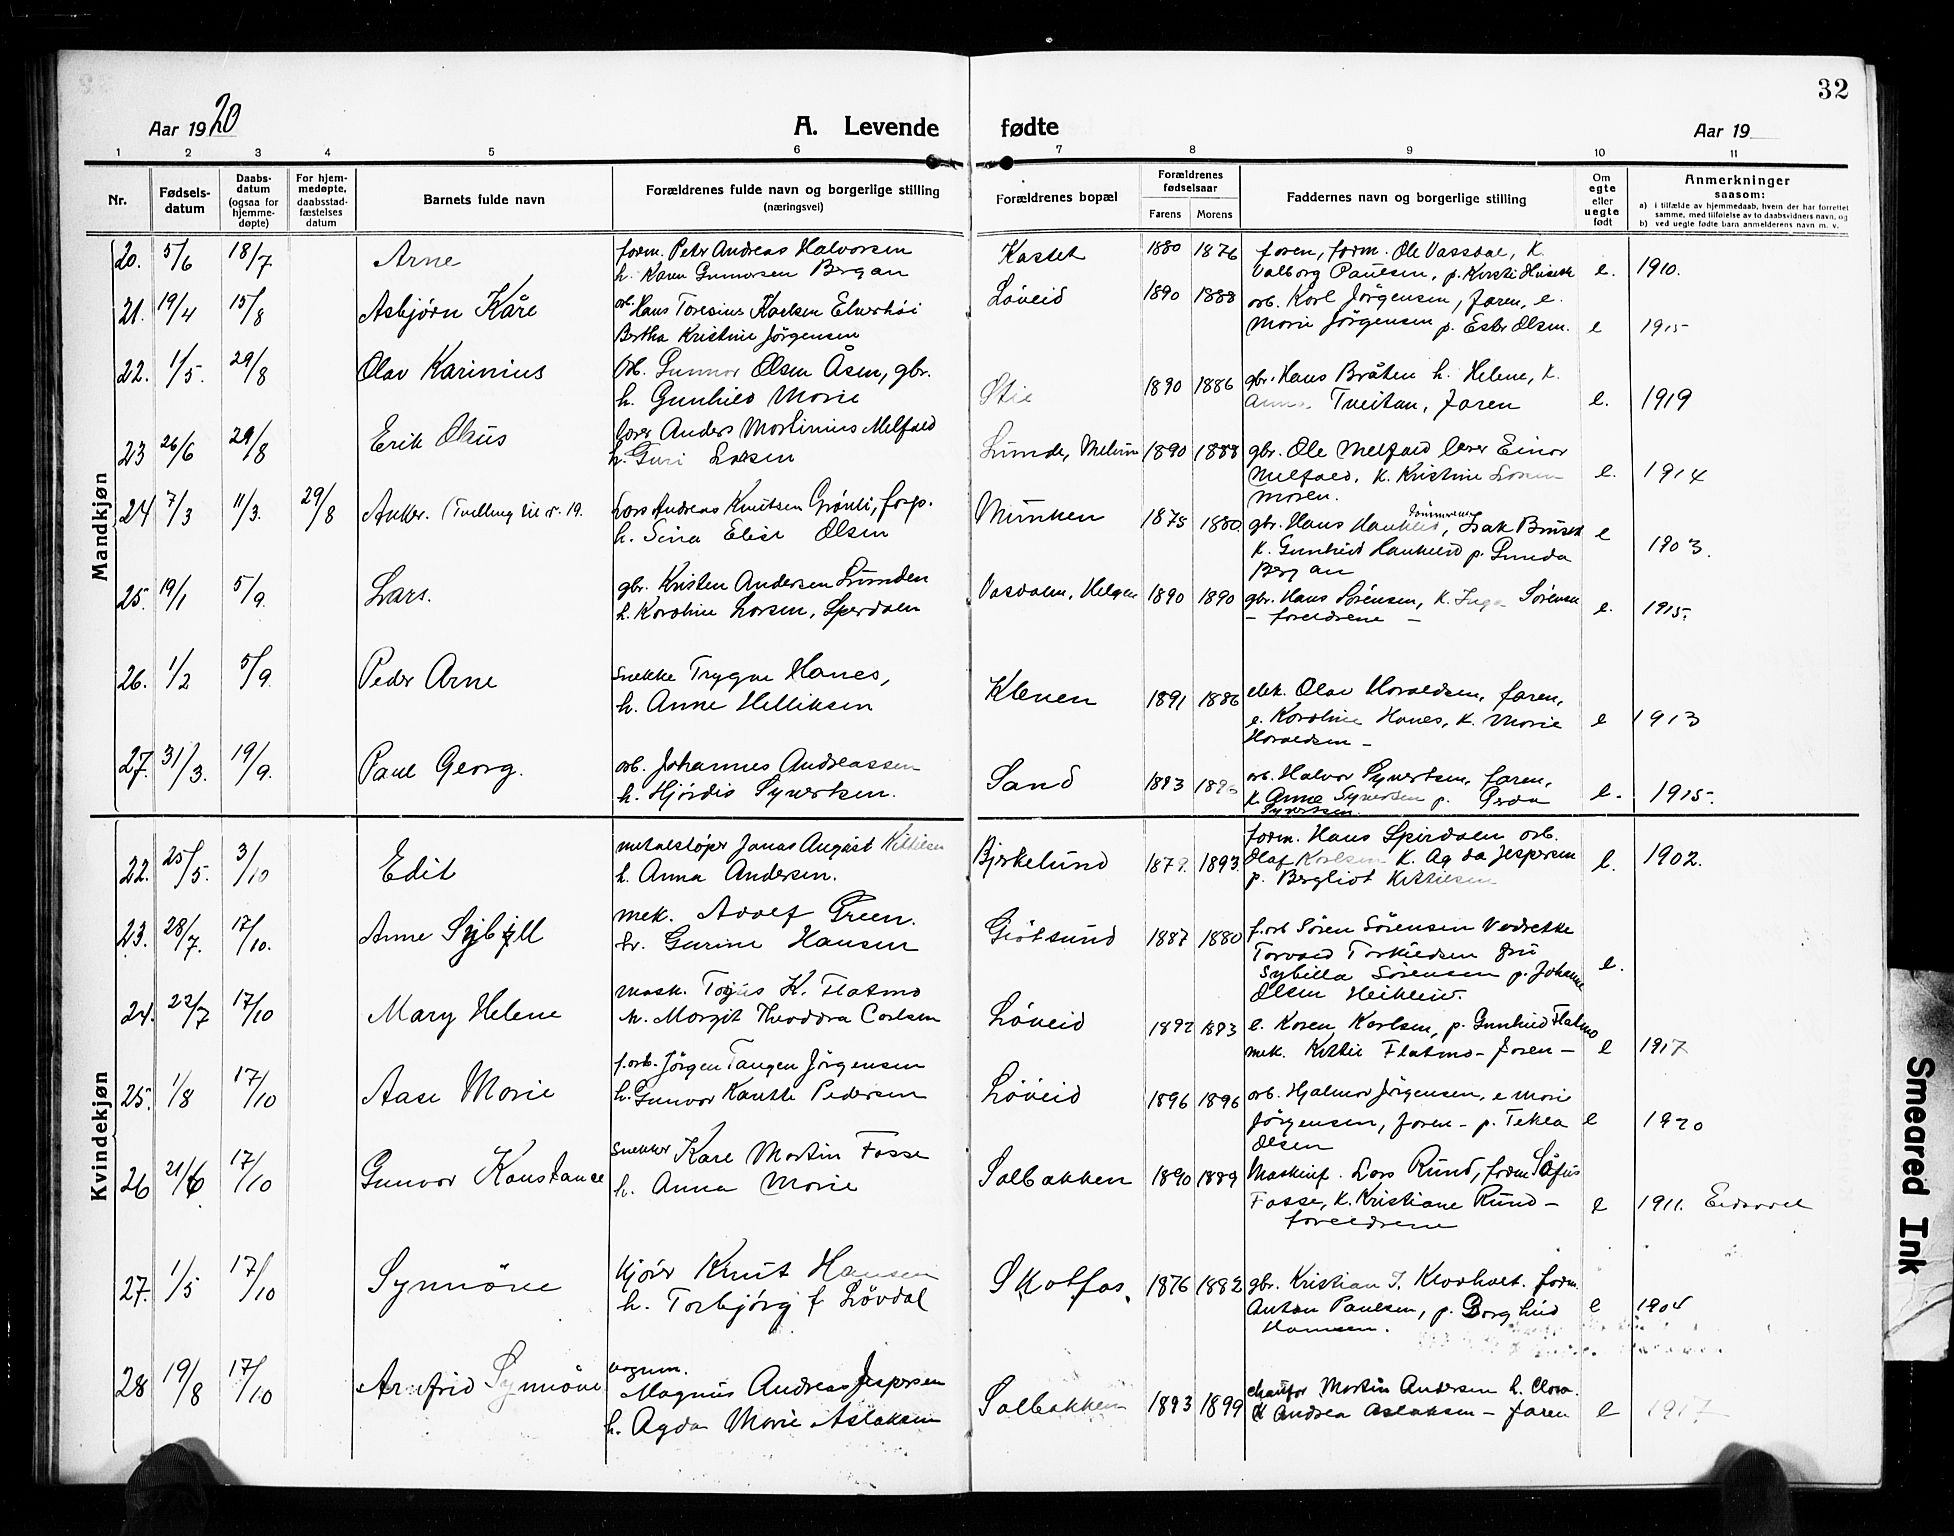 32
Aar 1920
A. Levende fødte
Aar 19
1 2 3 4 5 6 7 8 9 10 11
Nr.
Fødsels-
datum
Daabs-
datum
(ogsaa for
hjemme-
døpte)
For hjem-
medøpte,
daabsstad-
fæstelses
datum
Barnets fulde navn
Forældrenes fulde navn og borgerlige stilling
(næringsvei)
Forældrenes bopæl
Forældrenes
fødselsaar
Farens Morens
Faddernes navn og borgerlige stilling
Om
egte
eller
uegte
født
Anmerkninger
saasom:
a) i tilfælde av hjemmedaab, hvem der har forrettet
samme, med tilføielse av to daabsvidners navn, og
b) ved uegte fødte barn anmelderens navn m. v.
Mandkjøn
20. 5/6 18/7 Arne
form. Petr Andreas Halvorsen
h. Karen Gunnersen Bergan
Kastet 1880 1876
faren, form. Ole Vassdal, K.
Valborg Paulsen, p. Kirsti
e. 1910.
21. 19/4 15/8 Asbjørn Kåre
arb. Hans Toresius Karlsen
Bertha Kristine Jörgensen
Löveid 1890 1888
arb. Karl Jörgensen, faren, e.
Marie Jörgensen p. Ester Olsen.
e 1915
22. 1/5. 29/8 Olav Karinius
arb. Gunnar Olsen Åsen, gbr.
h. Gunhild Marie
Stie 1890 1886
gbr. Hans Bråten h. Helene, K.
Anna Tveitan, faren
e. 1919
23 26/6 29/8 Erik Olaus
lærer Anders Martinius Melfald
h. Guri Larsen
Lunde, Melum 1890 1888
gbr. Ole Melfald lærer Einar
Melfald, K. Kristine Larsen
moren.
e. 1914
24 7/3 11/3. 29/8 Anker. (Tvilling til nr. 19.
Lars Andreas Knutsen Grönli, forp.
h. Sina Elise Olsen
Munken 1875 1880
gbr. Hans Haukelid, Isak
K. Gunhild Haukelid p. Gunda
Bergan
e 1903.
25. 19/1 5/9. Lars.
gbr. Kristen Andersen Lunden
h. Karoline Larsen, Sperdalen
Vasdalen, Helgen 1890 1890
gbr. Hans Sörensen, K. Inga Sörensen
– foreldrene –
e. 1915.
26. 1/2 5/9. Peder Arne
snekke Trygve Hanes,
h. Anne Helliksen
Kleven 1891 1886
elek. Olav Haraldsen, faren,
e. Karoline Hanes, K. Marie
Haraldsen –
e 1913
27. 31/3. 19/9. Paul Georg.
arb. Johannes Andreassen
h. Hjördis Syvertsen.
Sand 1893
arb. Halvor Syvertsen, faren,
K. Anne Syversen p. Gerda
Syvertsen
e. 1915.
Kvindekjøn
22. 25/5. 3/10 Edit
metalstöper Jonas August Kittilsen
h. Anna Andersen.
Bjerkelund 1879. 1893.
form. Hans Sperdalen arb.
Olaf Karlsen K. Agda Jespersen
p. Bergliot Kittilsen
e. 1902.
23. 28/7. 17/10. Anne Sybill
mek. Adolf Green.
h. Gurine Hansen
Grötsund 1887 1880
f.arb Sören Sörensen Vadrette
Torvald Torkildsen fru
Sybilla Sörensen p. Johanne
Olsen Heiklein.
e.
24. 22/7 17/10 Mary Helene
mask. Tojus K. Flatmo
h. Margit Theodora Carlsen
Löveid 1892 1893
e. Karen Karlsen, p. Gunhild Flatmo
mek. Kittil Flatmo – faren –
e 1917
25. 1/8 17/10 Aase Marie
f.arb. Jörgen Tangen Jörgensen
h. Gunvor Kanutte Pedersen
Löveid 1896 1896
arb. Hjalmar Jörgensen, e Marie
Jörgensen, faren – p. Tekla
Olsen
e 1920
26 21/6 17/10 Gunvor Konstance
snekker Karl Martin Fosse
h. Anna Marie
Solbakken 1890 1889
Maskinf. Lars Rund, form Sofus
Fosse, K. Kristiane Rund –
foreldrene
e 1911. Eidsvoll
27. 1/5 17/10 Synnöve
kjörer Knut Hansen
h. Torbjörg f Lövdal
Skotfos. 1876 1882
gbr. Kristian I. Klovholt. form.
Anton Paulsen, p. Borghild
Hansen.
e 1904
28 19/8 17/10 Arnfrid Synnöve
vognm.
Magnus Andreas Jespersen
h. Agda Marie Aslaksen
Solbakken 1893 1899
chauför Martin Andersen h. Clara.
K Andrea Aslaksen – faren
e 1917
Smeared Ink